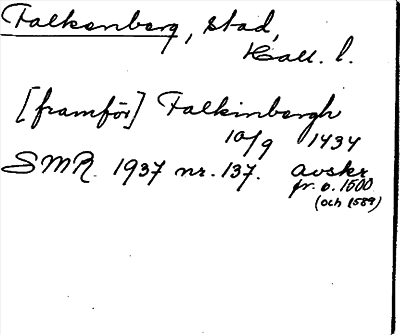 Falkenberg, stad,
Hall. l.
[framför] Falkinbergh
10/9 1434
SMR. 1937 nr. 137. avskr.
fr. o. 1500
(och 1589)